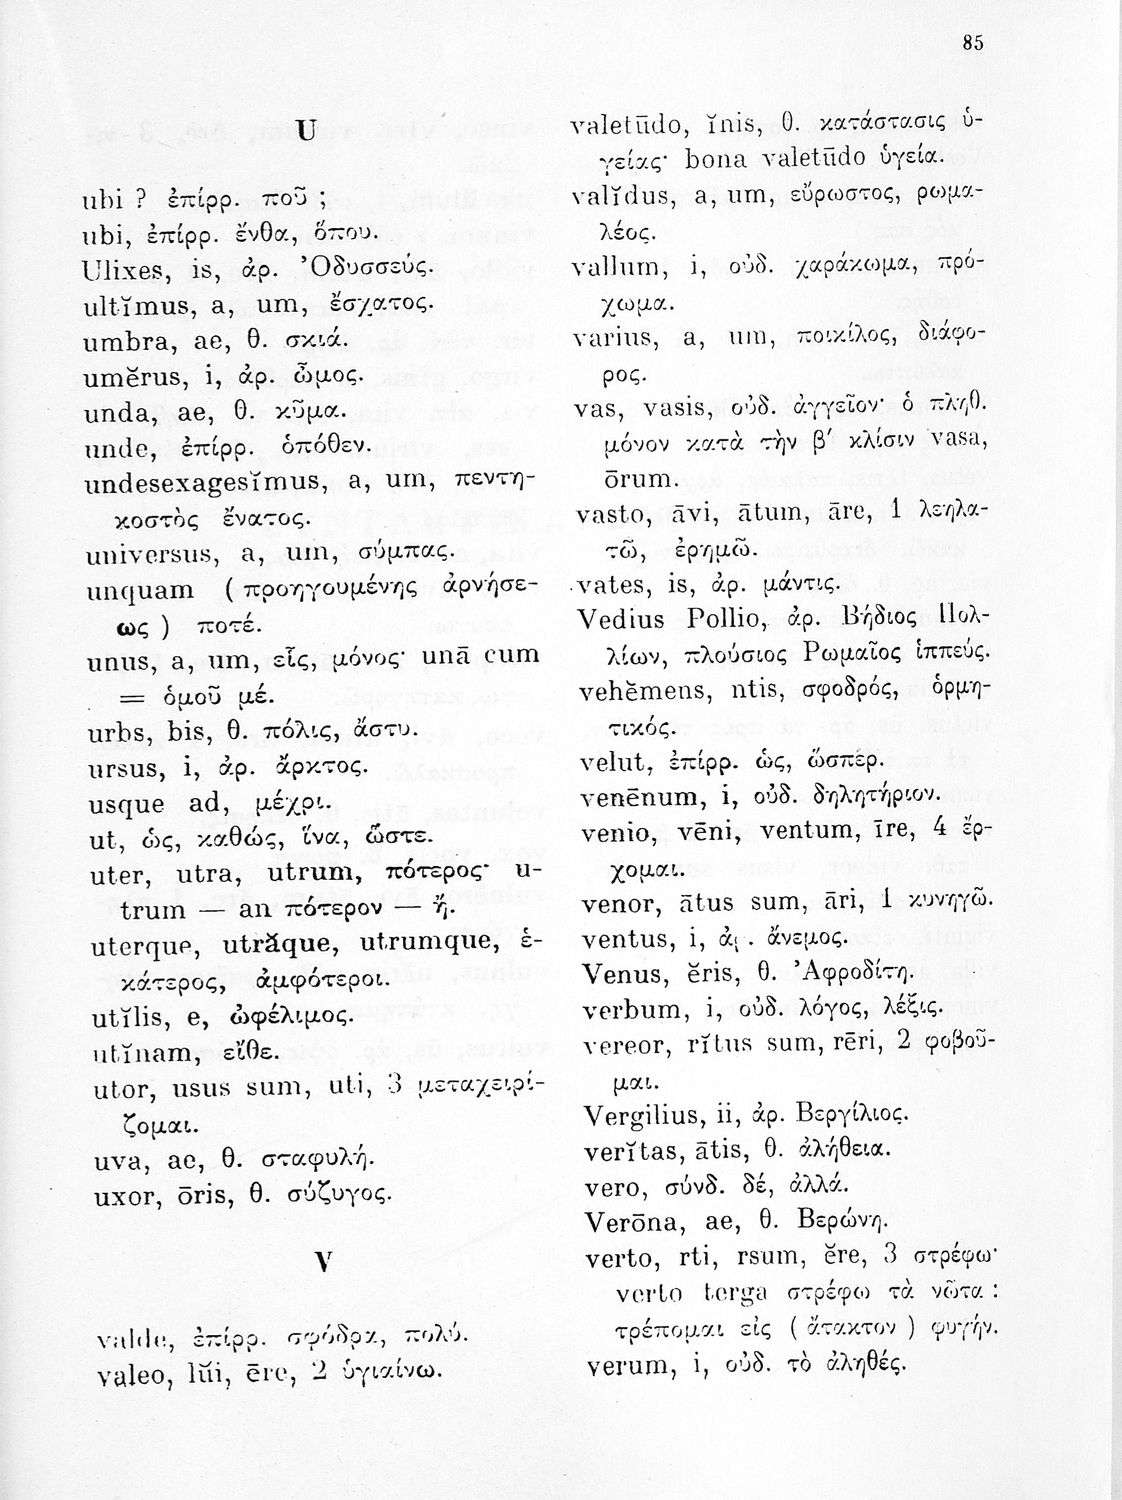 85
U
ubi ? ἐπίρρ. ποῦ ;
ubi, ἐπίρρ. ἔνθα, ὅπου.
Ulixes, is, ἀρ. Ὀδυσσεύς.
ultĭmus, a, um, ἔσχατος.
umbra, ae, θ. σκιά.
umĕrus, i, ἀρ. ὦμος.
unda, ae, θ. κῦμα.
unde, ἐπίρρ. ὁπόθεν.
undesexagesĭmus, a, um, πεντη-
κοστὸς ἔνατος.
universus, a, um, σύμπας.
unquam ( προηγουμένης ἀρνήσε-
ως ) ποτέ.
unus, a, um, εἷς, μόνος· unā cum
= ὁμοῦ μέ.
urbs, bis, θ. πόλις, ἄστυ.
ursus, i, ἀρ. ἄρκτος.
usque ad, μέχρι.
ut, ὡς, καθώς, ἵνα, ὥστε.
uter, utra, utrum, πότερος· u-
trum — an πότερον — ἤ.
uterque, utrăque, utrumque, ἑ-
κάτερος, ἀμφότεροι.
utĭlis, e, ὠφέλιμος.
utĭnam, εἴθε.
utor, usus sum, uti, 3 μεταχειρί-
ζομαι.
uva, ae, θ. σταφυλή.
uxor, ōris, θ. σύζυγος.
V
valde, ἐπίρρ. σφόδρα, πολύ.
valeo, lŭi, ēre, 2 ὑγιαίνω.
valetūdo, ĭnis, θ. κατάστασις ὑ-
γείας· bona valetūdo ὑγεία.
valĭdus, a, um, εὔρωστος, ρωμα-
λέος.
vallum, i, οὐδ. χαράκωμα, πρό-
χωμα.
varius, a, um, ποικίλος, διάφο-
ρος.
vas, vasis, οὐδ. ἀγγεῖον· ὁ πληθ.
μόνον κατὰ τὴν β′ κλίσιν vasa,
ōrum.
vasto, āvi, ātum, āre, 1 λεηλα-
τῶ, ἐρημῶ.
vates, is, ἀρ. μάντις.
Vedius Pollio, ἀρ. Βήδιος Πολ-
λίων, πλούσιος Ρωμαῖος ἱππεύς.
vehĕmens, ntis, σφοδρός, ὁρμη-
τικός.
velut, ἐπίρρ. ὡς, ὥσπερ.
venēnum, i, οὐδ. δηλητήριον.
venio, vēni, ventum, īre, 4 ἔρ-
χομαι.
venor, ātus sum, āri, 1 κυνηγῶ.
ventus, i, ἀρ. ἄνεμος.
Venus, ĕris, θ. Ἀφροδίτη.
verbum, i, οὐδ. λόγος, λέξις.
vereor, rĭtus sum, rēri, 2 φοβοῦ-
μαι.
Vergilius, ii, ἀρ. Βεργίλιος.
verĭtas, ātis, θ. ἀλήθεια.
vero, σύνδ. δέ, ἀλλά.
Verōna, ae, θ. Βερώνη.
verto, rti, rsum, ĕre, 3 στρέφω·
verto terga στρέφω τὰ νῶτα :
τρέπομαι εἰς ( ἄτακτον ) φυγήν.
verum, i, οὐδ. τὸ ἀληθές.